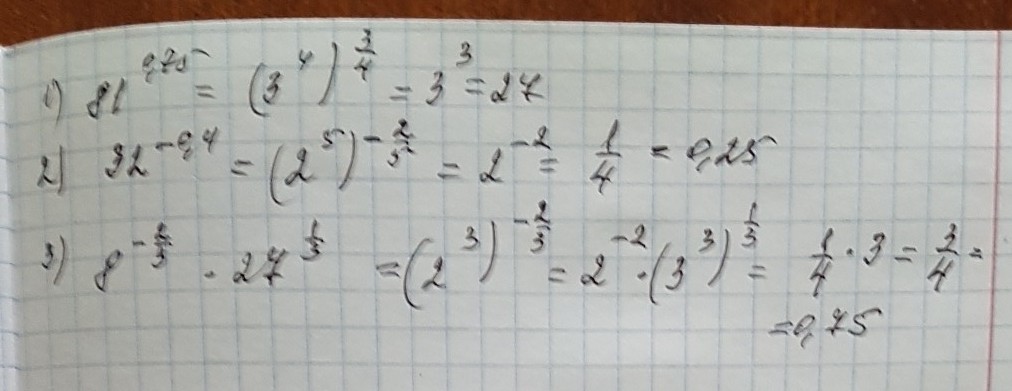 1) 81^0,75 = (3^4)^3/4 = 3^3 = 27
2) 32^-0,4 = (2^5)^-2/5 = 2^-2 = 1/4 = 0,25
3) 8^-2/3 · 27^1/3 = (2^3)^-2/3 = 2^-2 · (3^3)^1/3 = 1/4 · 3 = 3/4 =
= 0,75